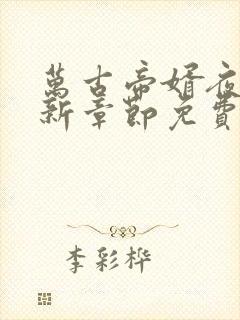 萬古帝婿夜
新章節免費
李彩桦